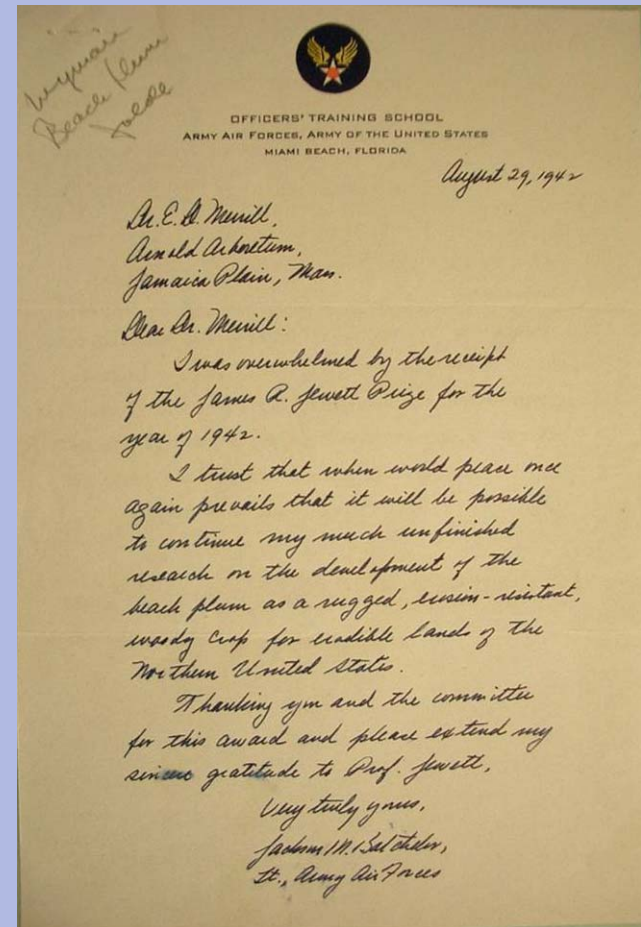 Wyman
Beach plum
folder
OFFICERS' TRAINING SCHOOL
ARMY AIR FORCES, ARMY OF THE UNITED STATES
MIAMI BEACH, FLORIDA
August 29, 1942
Dr. E. D. Merrill,
Arnold Arboretum,
Jamaica Plain, Mass.
Dear Dr. Merrill:
I was overwhelmed by the receipt
of the James R. Jewett Prize for the
year of 1942.
I trust that when world peace once
again prevails that it will be possible
to continue my much unfinished
research on the development of the
beach plum as a rugged, erosion-resistant,
woody crop for erodible lands of the
Northern United States.
Thanking you and the committee
for this award and please extend my
sincere gratitude to Prof. Jewett,
Very truly yours,
Jackson M. Batchelor,
Lt., Army Air Forces